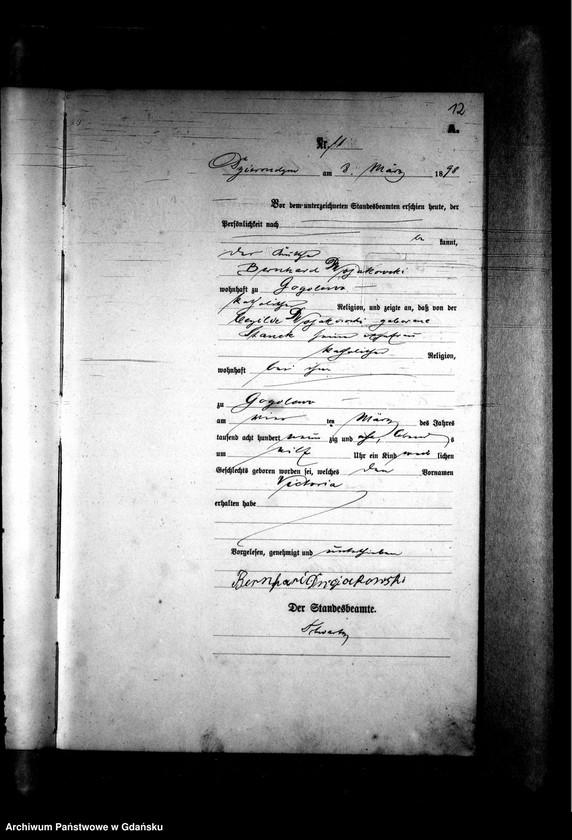 12
A.
Nr. 11
am 8. März 1898
Vor dem unterzeichneten Standesbeamten erschien heute, der
Persönlichkeit nach
be kannt,
der
Bernhard
wohnhaft zu Gogolewo
katholischer Religion, und zeigte an, daß von der
geborene
Stanek seiner Ehefrau
katholischer Religion,
wohnhaft bei ihm
zu Gogolewo
am vier ten März des Jahres
tausend acht hundert neun zig und acht, Abend s
um Uhr ein Kind weib lichen
Geschlechts geboren worden sei, welches den Vornamen
Victoria
erhalten habe
Vorgelesen, genehmigt und unterschrieben
Der Standesbeamte.
Archiwum Państwowe w Gdańsku